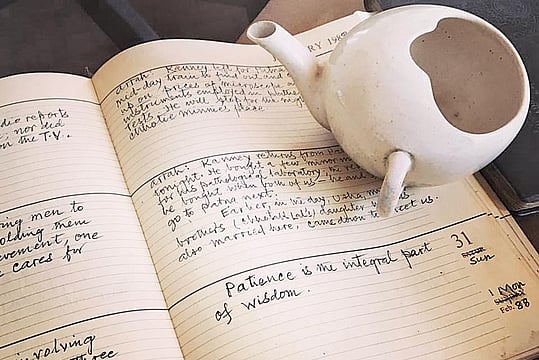 dio reports
nor did
n the T.V.
ing men to
olding men
vement, one
cares for
involving
RY 198
arrah: Kanney left for
mid-day train to find out and
up the prices of microscope
instruments employed in
tests. He will stop for the
place.
arrah: Kanney returns from
tonight. He bought a few minor
for his pathological laboratory, the
be bought when both of us — he and
go to patna next.
Earlier in the day, Usha
brother's daughter
also married here, came down to meet us.
Patience is the integral part
of wisdom.
31
Sun
1 Mon
Feb. 88